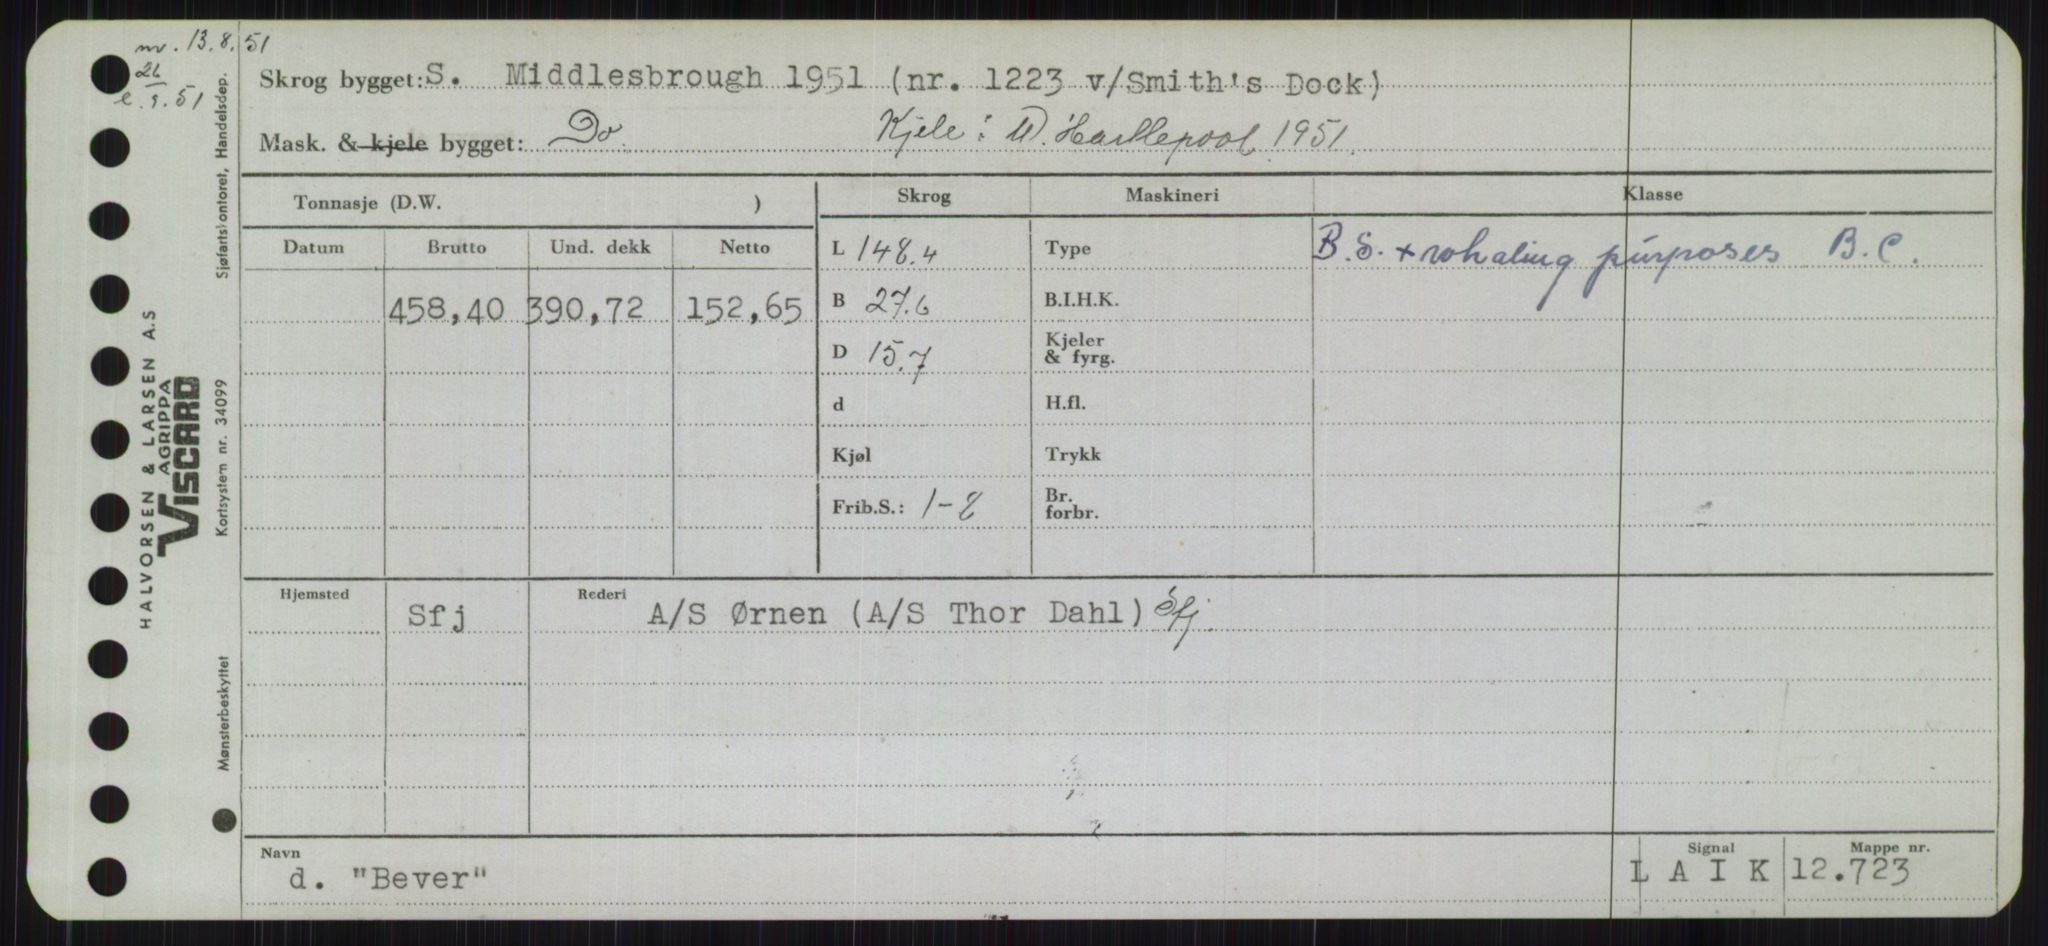 nv. 13.8.51
26
e.9.51
Skrog bygget: S. Middlesbrough 1951 (nr. 1223 v/Smith's Dock)
Mask. & kjele bygget: Do. Kjele: W. Hartlepool 1951.
Tonnasje (D.W. )
Skrog Maskineri Klasse
Datum Brutto Und. dekk Netto
L 148.4 Type B.S. + whaling purposes B.C.
458,40 390,72 152,65
B 27.6 B.I.H.K.
D 15.7 Kjeler & fyrg.
d H.fl.
Kjøl Trykk
Frib.S.: 1-8 Br. forbr.
Hjemsted Rederi
Sfj A/S Ørnen (A/S Thor Dahl) Sfj.
Navn Signal Mappe nr.
d. "Bever" L A I K 12.723
Sjøfartskontoret, Handelsdep.
HALVORSEN & LARSEN A.S
AGRIPPA
VISCARD
Kortsystem nr. 34099
Mønsterbeskyttet